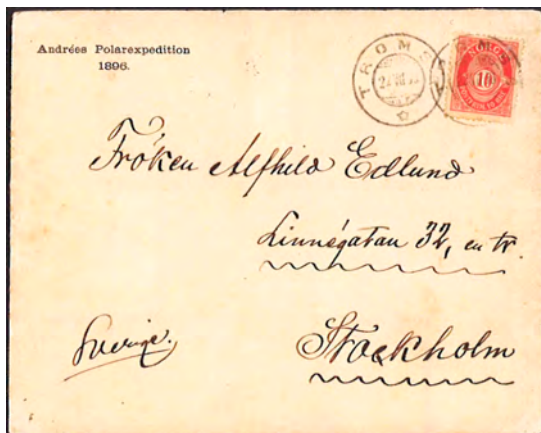 Andrées Polarexpedition
1896.
TROMS
NORGE
10
Fröken Alfhild Edlund
Linnégatan 32, en tr.
Stockholm
Sverige.